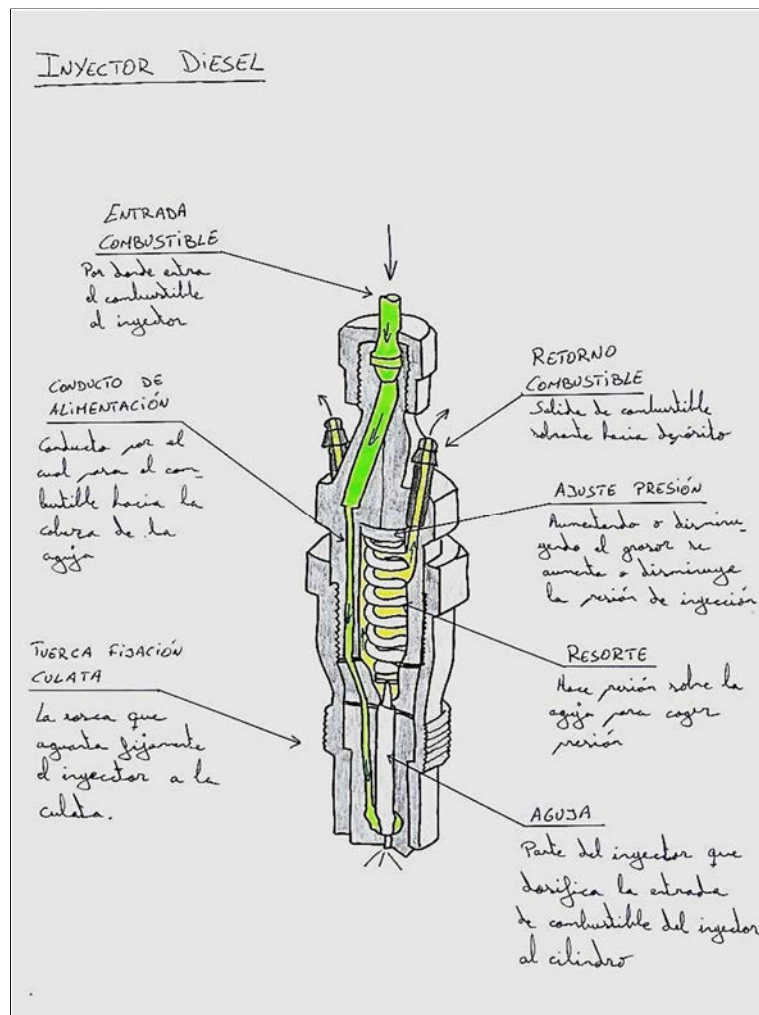 INYECTOR DIESEL
ENTRADA
COMBUSTIBLE
Por donde entra
el combustible
al inyector
CONDUCTO DE
ALIMENTACIÓN
Conducto por el
cual pasa el com-
bustible hacia la
cabeza de la
aguja
TUERCA FIJACIÓN
CULATA
La rosca que
aguanta fijamente
el inyector a la
culata.
RETORNO
COMBUSTIBLE
Salida de combustible
sobrante hacia depósito
AJUSTE PRESIÓN
Aumentando o disminu-
yendo el grosor se
aumenta o disminuye
la presión de inyección
RESORTE
Hace presión sobre la
aguja para coger
presión
AGUJA
Parte del inyector que
dosifica la entrada
de combustible del inyector
al cilindro